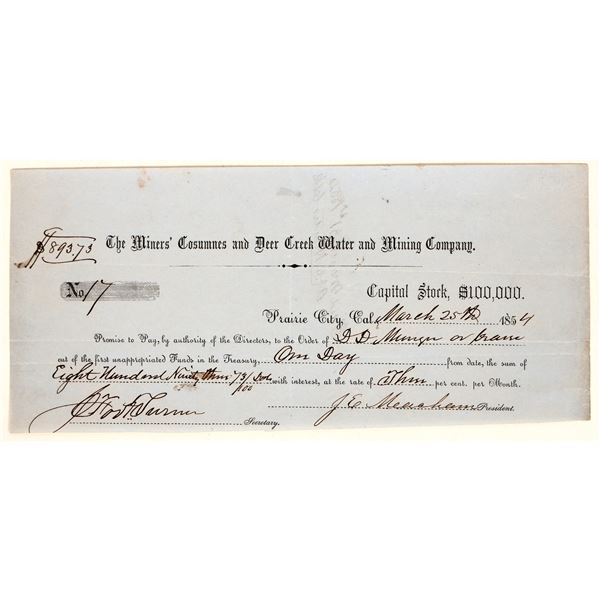 $893.73 The Miners' Cosumnes and Deer Creek Water and Mining Company.
No 17 Capital Stock, $100,000.
Prairie City, Cal. March 25th 1854
Promise to Pay, by authority of the Directors, to the Order of D D Munger or
out of the first unappropriated Funds in the Treasury, One Day from date, the sum of
Eight Hundred Ninty three 73/100 Dol with interest, at the rate of Three per cent. per Month.
Turner J E Meacham President.
Secretary.